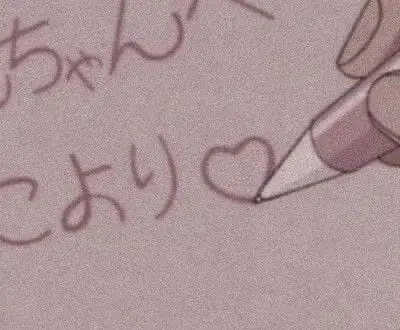 ちゃんへ
こより♡